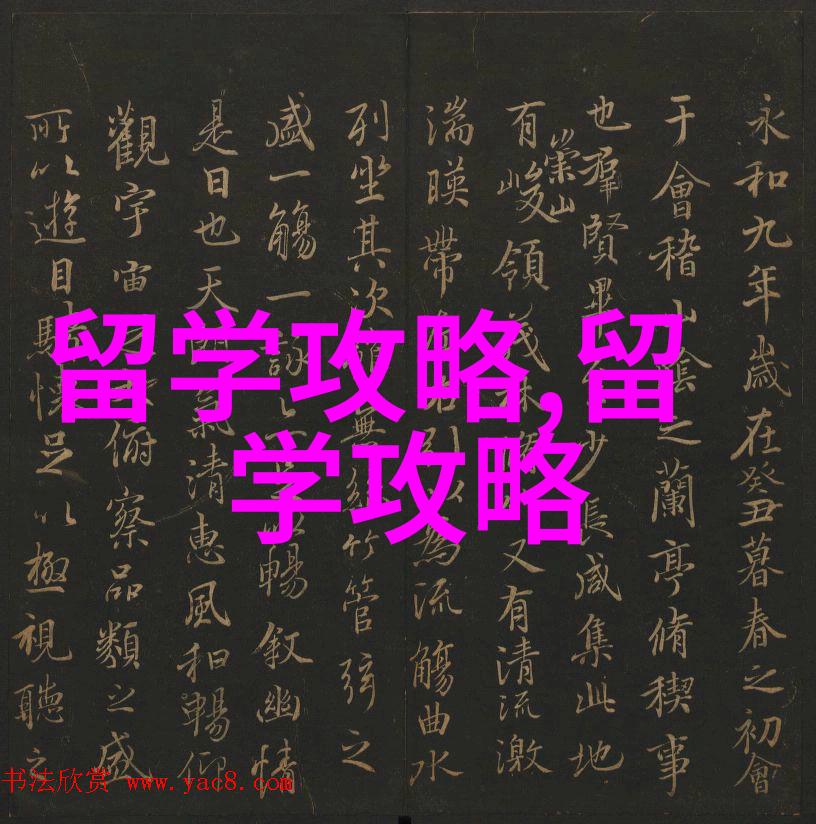 永和九年歲在癸丑暮春之初會
于會稽山陰之蘭亭脩稧事
也羣賢畢少長咸集此地
有崇山峻領茂林又有清流激
湍暎帶左右引以為流觴曲水
列坐其次雖無絲竹管弦之
盛一觴一詠以暢敘幽情
是日也天朗氣清惠風和暢仰
觀宇宙之大俯察品類之盛
所以遊目騁懷足以極視聽之
留学攻略,留
学攻略
书法欣赏 www.yac8.com